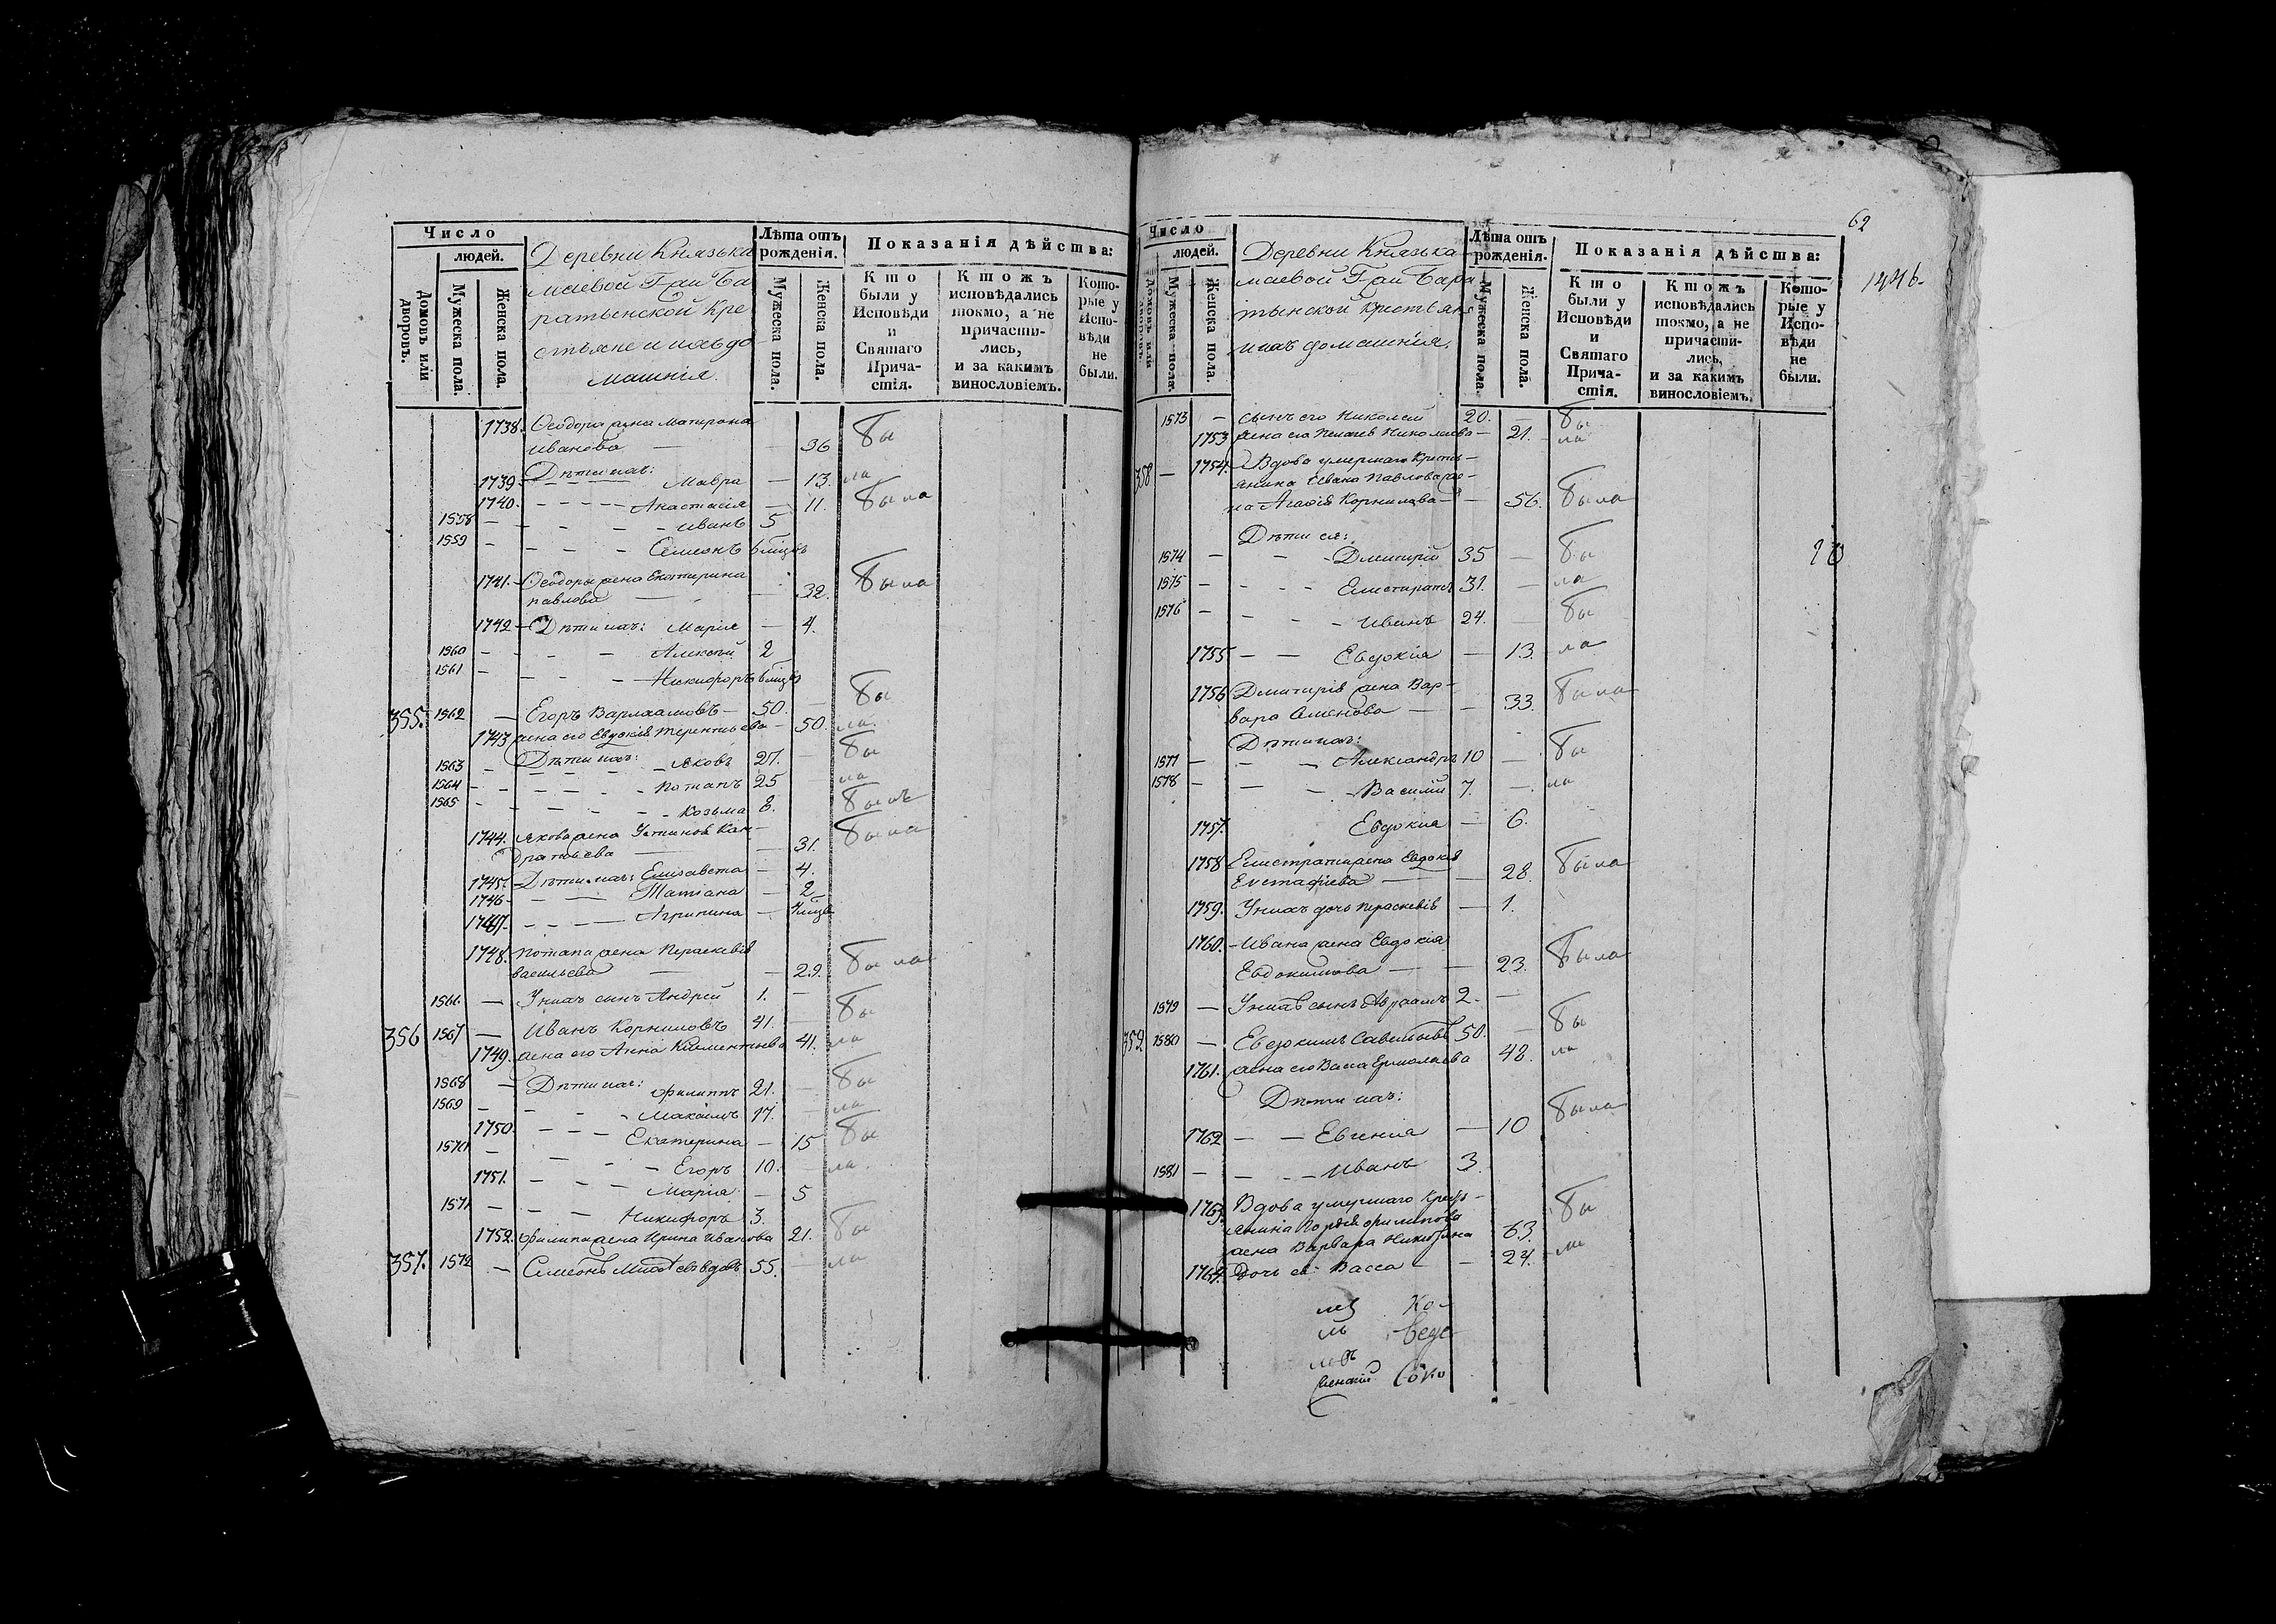 Число
людей.
Домовъ или дворовъ.
Мужеска пола.
Женска пола.
Деревни Князька
маевой Гаи Ба
ратынской Кре
стьяне и ихъ до
машнія.
Лѣта отъ рожденія.
Мужеска пола.
Женска пола.
Показанія дѣйства:
Кто были у Исповѣди и Святаго Причастія.
Ктожъ исповѣдались токмо, а не причастились, и за какимъ винословіемъ.
Которые у Исповѣди не были.
1738. Ѳеодора жена Матрона
Иванова — 36 бы
Дѣти ихъ:
1739. Мавра — 13. ла
1740. Анастасія — 11. была
1558 — Иванъ 5
1559 — Семенъ
1741. Ѳеодора жена Екатерина
Павлова — 32. была
1742 Дѣти ихъ: Марія — 4.
1560 — Алексѣй 2
1561 — Никифоръ
355. 1562 — Егоръ Варлаамовъ — 50. — бы
1743 жена его Евдокія Терентьева — 50. ла
1563 — Дѣти ихъ: Яковъ 27. — бы
1564 — Потапъ 25 — ла
1565 — Козьма 8. былъ
1744. Якова жена Устинья Кон-
дратьева — 31. была
1745. Дѣти ихъ: Елисавета — 4.
1746 — Татіана — 2
1747. — Агрипина —
1748. Потапа жена Параскевія
Васильева — 29. была
1566 — У нихъ сынъ Андрей 1. —
356 1567 — Иванъ Корниловъ 41. — бы
1749. жена его Анна Климентьева 41. ла
1568 — Дѣти ихъ: Филиппъ 21. — бы
1569 — Максимъ 17. — ла
1750. — Екатерина — 15 бы
1570 — Егоръ 10. — ла
1751. — Марія — 5
1571 — Никифоръ 3.
1752. Филиппа жена Ирина Иванова 21. бы
357. 1572 — Семенъ вдовъ 55. — ла
62
1446
Число
людей.
Домовъ или дворовъ.
Мужеска пола.
Женска пола.
Деревни Князька
маевой Гаи Бара
тынской Крестьяне
ихъ домашнія.
Лѣта отъ рожденія.
Мужеска пола.
Женска пола.
Показанія дѣйства:
Кто были у Исповѣди и Святаго Причастія.
Ктожъ исповѣдались токмо, а не причастились, и за какимъ винословіемъ.
Которые у Исповѣди не были.
1573 — сынъ его Николай 20. — бы
1753 жена его Николаева — 21. — ла
358 — 1754. Вдова умершаго Кресть-
янина Ивана Павлова же-
на Агафія Корнилова — 56. была
Дѣти ея:
1574 — Дмитрій 35 — бы
1575 — Елистратъ 31. — ла
1576 — Иванъ 24. — бы
1755 — Евдокіа — 13. ла
1756 Дмитрія жена Вар-
вара Семенова — 33. была
Дѣти ихъ:
1577 — Александръ 10 — бы
1578 — Василій 7. — ла
1757. Евдокіа — 6.
1758 Елистрата жена Евдокія
Евстафіева — 28. была
1759. У нихъ дочь Параскевія — 1.
1760. Ивана жена Евдокіа
Евдокимова — 23. была
1579 — У нихъ сынъ Авраамъ 2. —
359 1580 — Евдокимъ Савельевъ 50. — бы
1761. жена его Васса Ермолаева 48. ла
Дѣти ихъ:
1762 — Евгеніа — 10 была
1581 — Иванъ 3.
1763. Вдова умершаго Кресть-
янина Гордея Филипова
жена Варвара Никитина 63. бы
1764. Дочь ея Васса — 24. ла